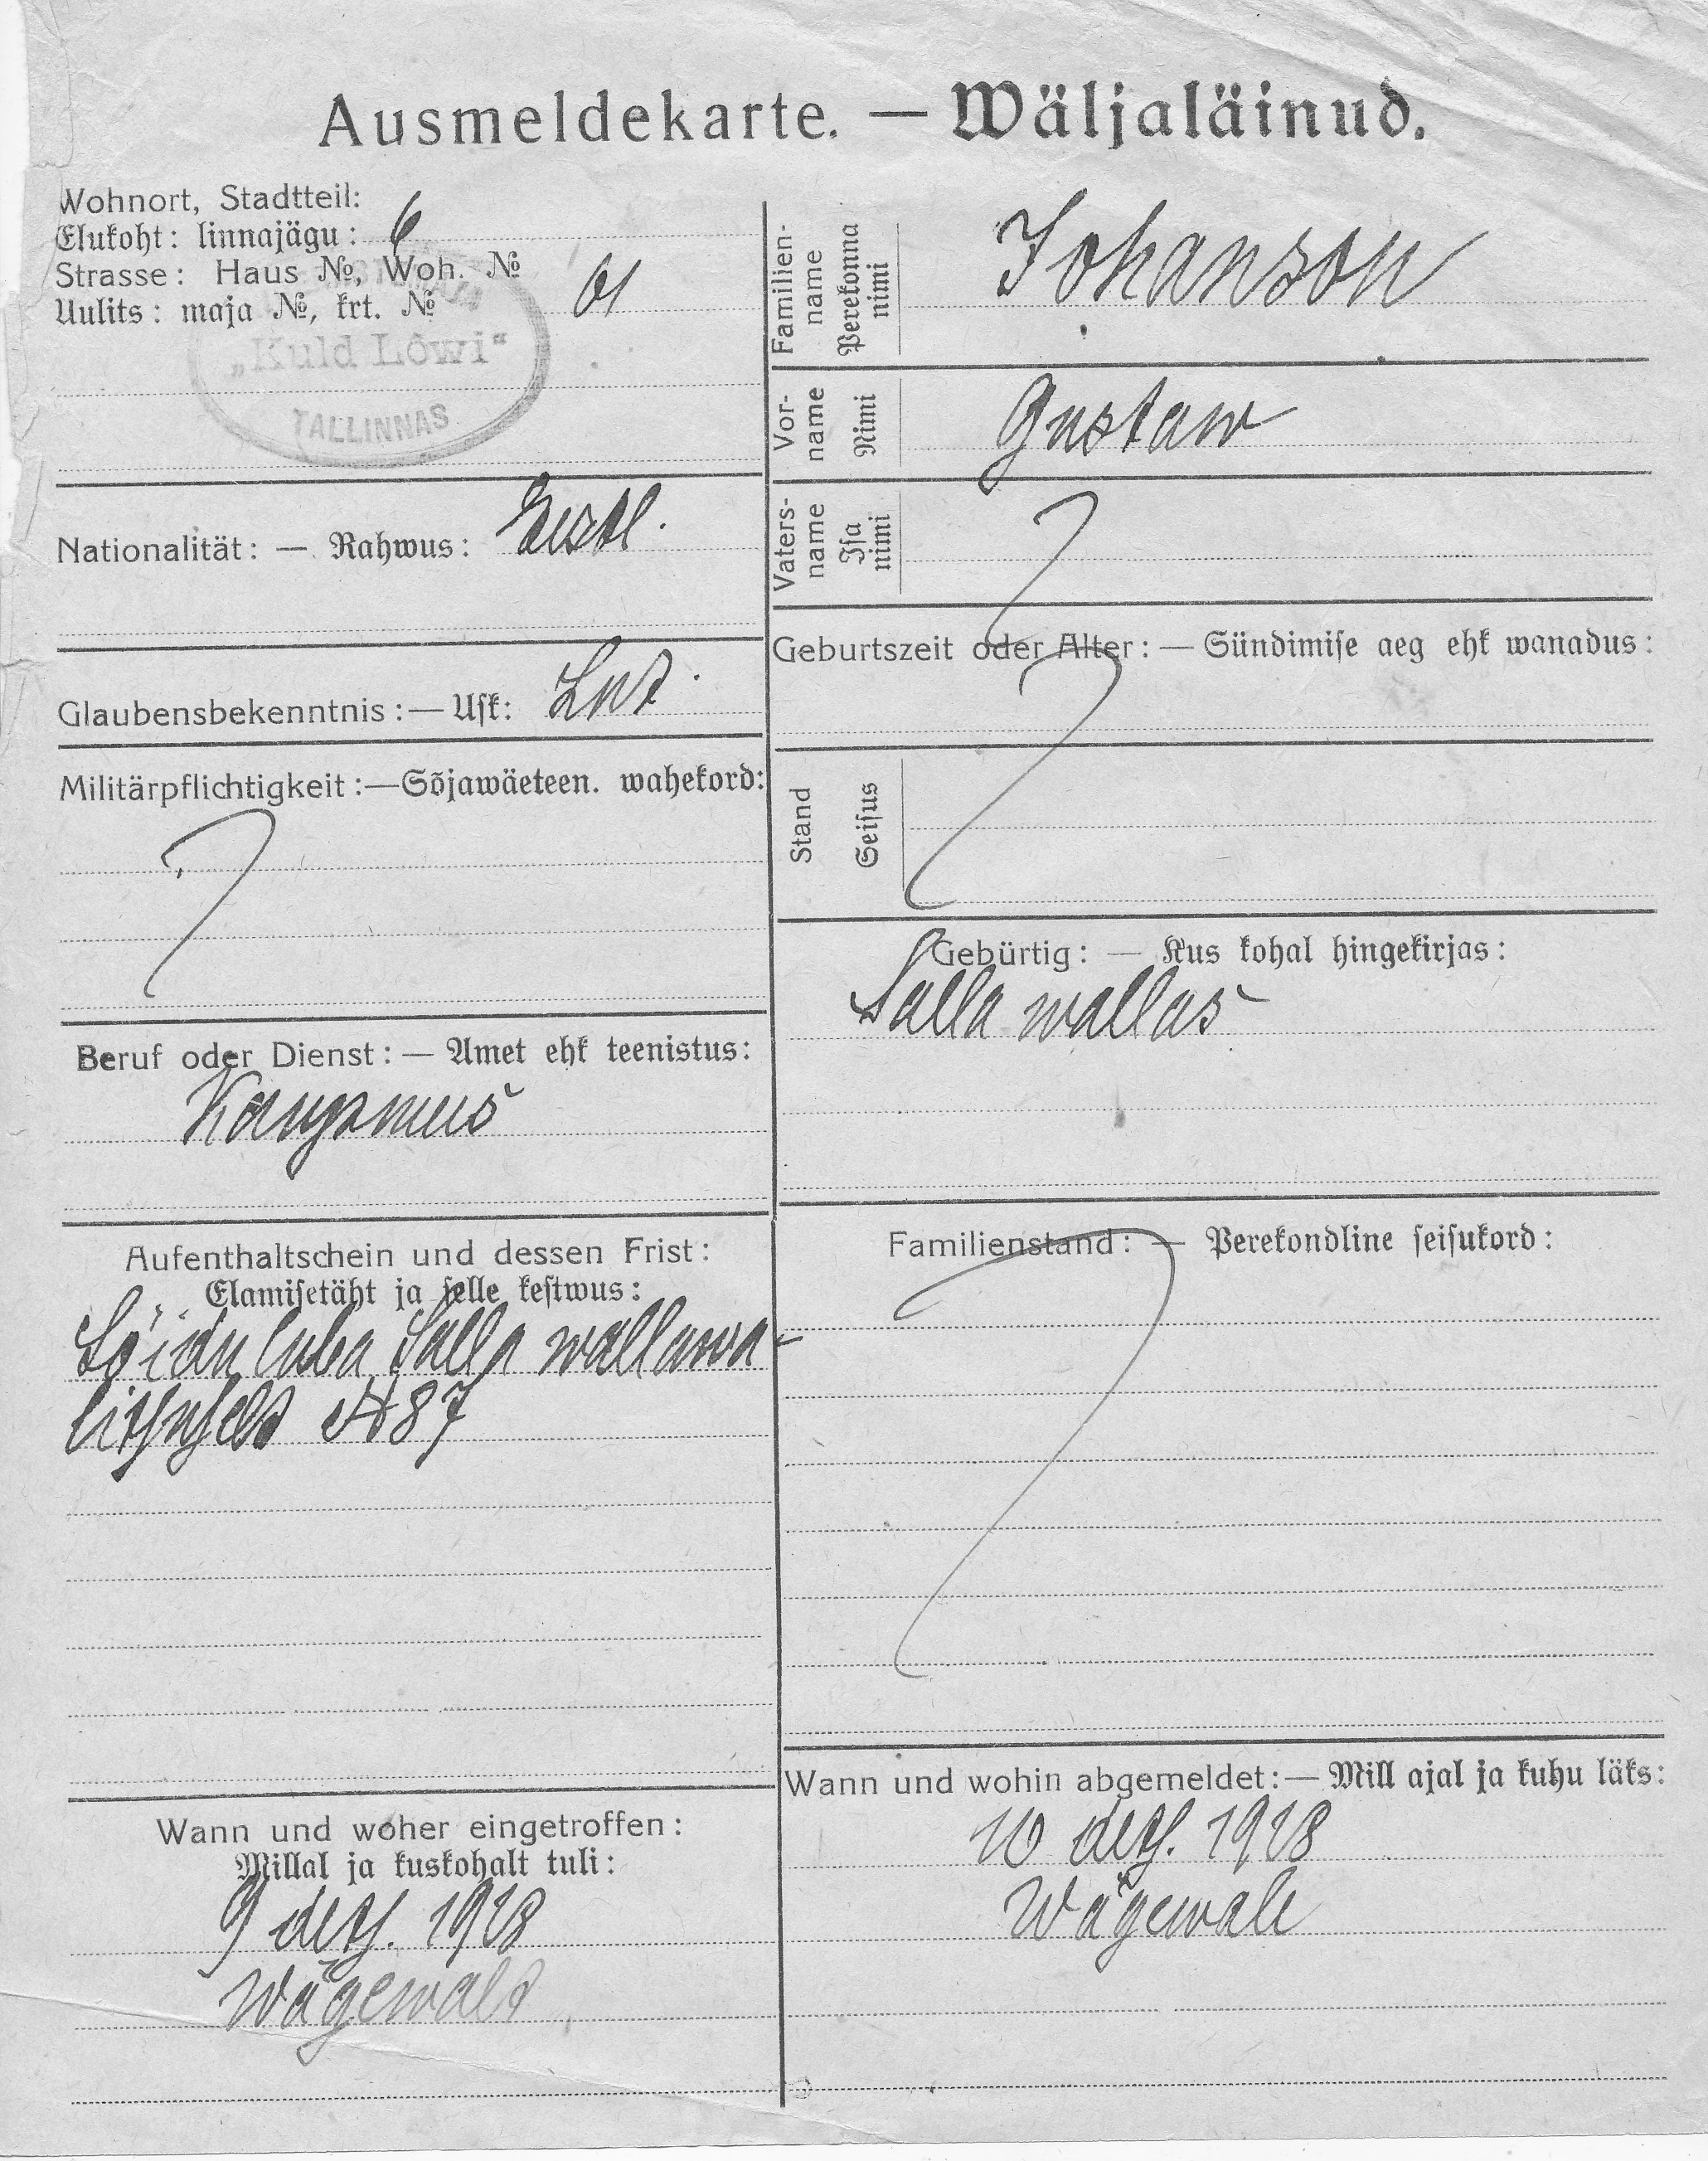 Ausmeldekarte. — Wäljaläinud.
Wohnort, Stadtteil:
Elukoht: linnajägu: 6
Strasse: Haus №, Woh. №
Uulits: maja №, krt. № 61
„Kuld Lõwi“
TALLINNAS
Nationalität: — Rahwus: Eestl.
Glaubensbekenntnis: — Usk: Lut.
Militärpflichtigkeit: — Sõjawäeteen. wahekord:
?
Beruf oder Dienst: — Amet ehk teenistus:
Kaupmees
Aufenthaltschein und dessen Frist:
Elamisetäht ja selle kestwus:
Sõidu luba Salla wallawa-
litsuselt № 87
Wann und woher eingetroffen:
Millal ja kuskohalt tuli:
9 dets. 1918
Wägewalt
Familien-
name
Perekonna
nimi
Johanson
Vor-
name
Nimi
Gustaw
Vaters-
name
Isa
nimi
?
Geburtszeit oder Alter: — Sündimise aeg ehk wanadus:
?
Stand
Seisus
Gebürtig: — Kus kohal hingekirjas:
Salla wallas
Familienstand: — Perekondline seisukord:
?
Wann und wohin abgemeldet: — Mill ajal ja kuhu läks:
10 dets. 1918
Wägewale